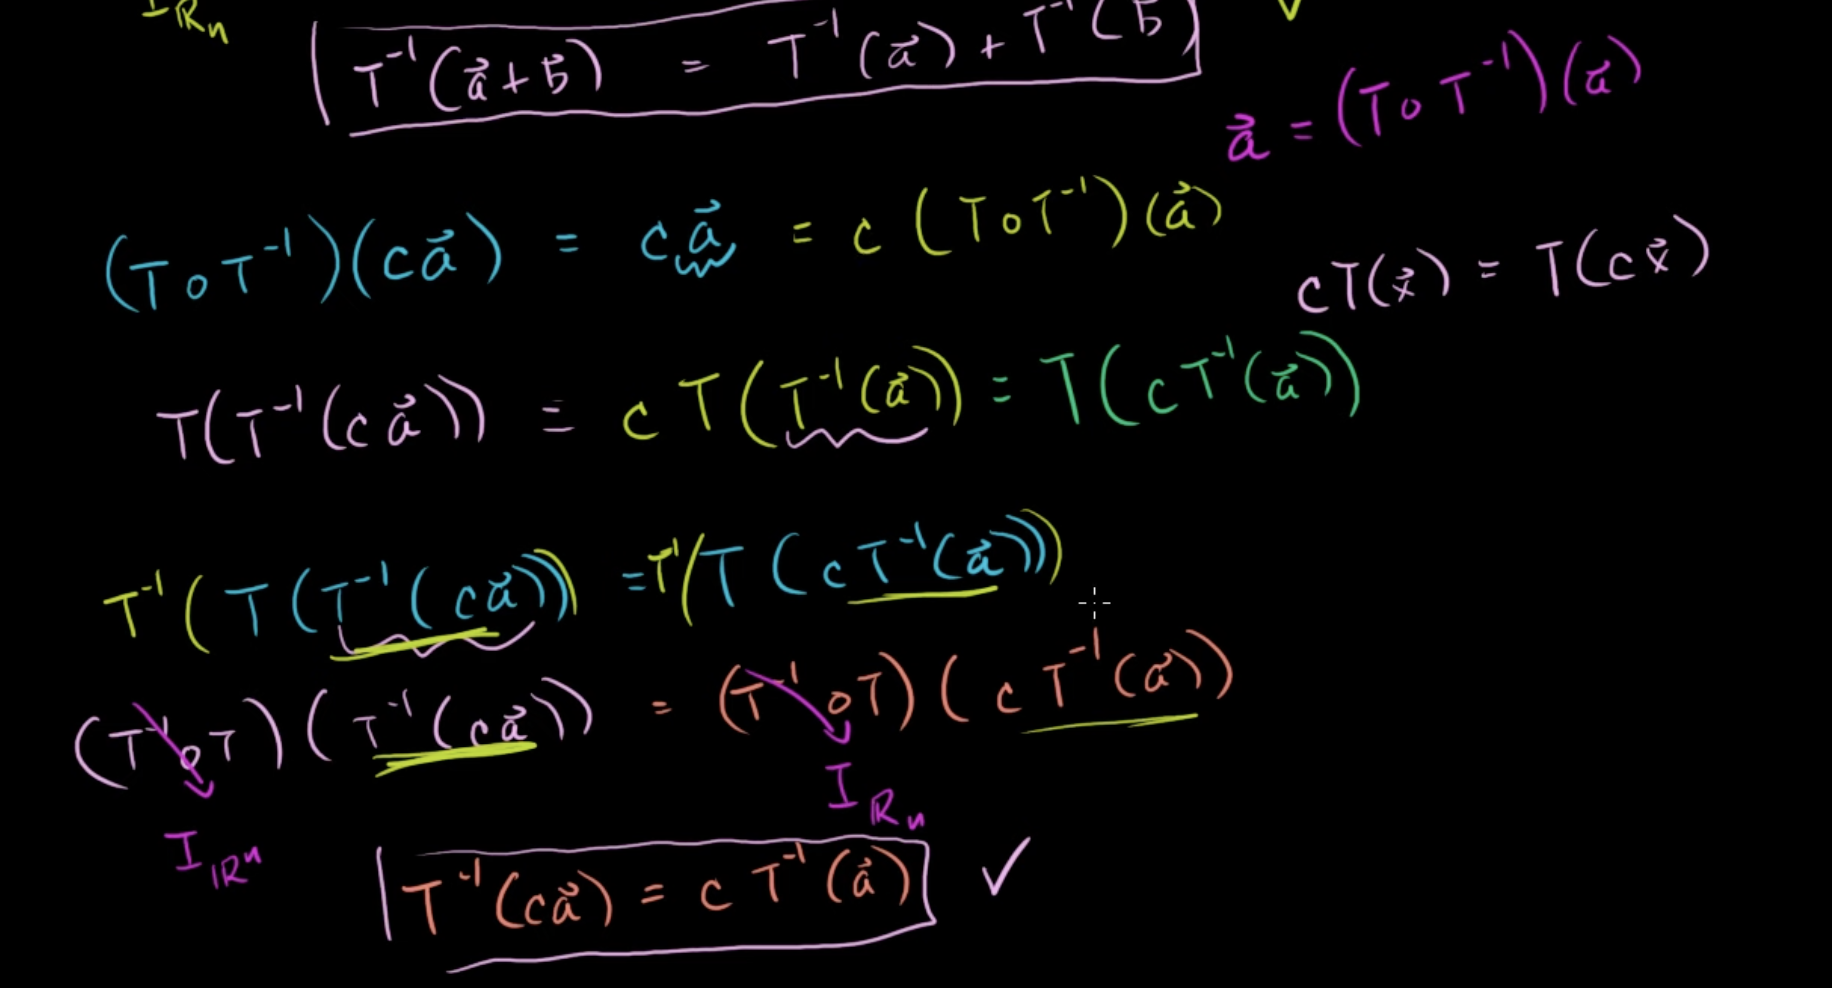 I_ℝn
T⁻¹(a⃗ + b⃗) = T⁻¹(a⃗) + T⁻¹(b⃗) ✓
a⃗ = (T∘T⁻¹)(a⃗)
(T∘T⁻¹)(ca⃗) = ca⃗ = c(T∘T⁻¹)(a⃗)
cT(x⃗) = T(cx⃗)
T(T⁻¹(ca⃗)) = cT(T⁻¹(a⃗)) = T(cT⁻¹(a⃗))
T⁻¹(T(T⁻¹(ca⃗))) = T⁻¹(T(cT⁻¹(a⃗)))
(T⁻¹∘T)(T⁻¹(ca⃗)) = (T⁻¹∘T)(cT⁻¹(a⃗))
I_ℝn
I_ℝⁿ
T⁻¹(ca⃗) = cT⁻¹(a⃗) ✓